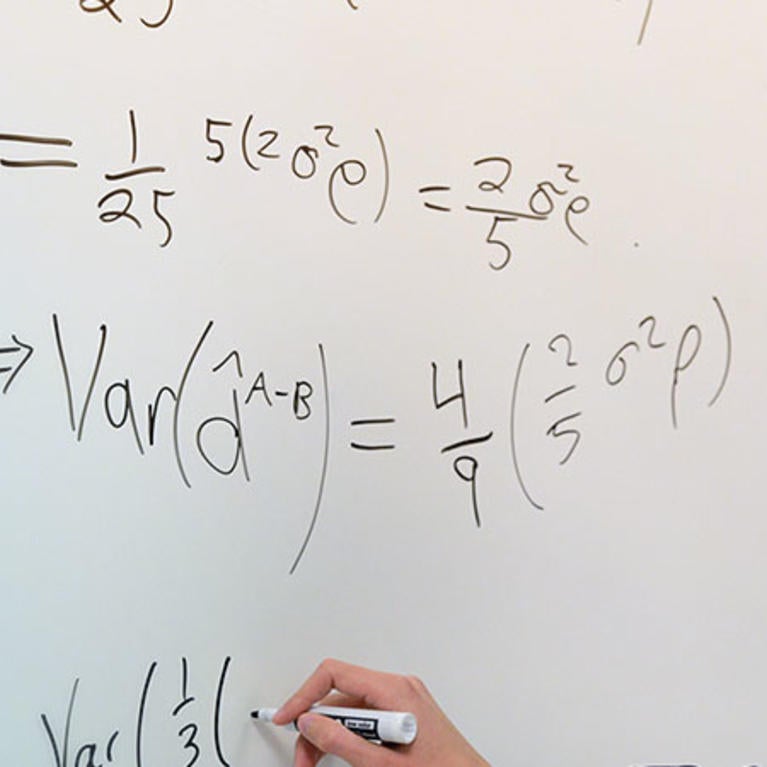 = 1/25 5(2σ²ρ) = 2/5 σ²ρ.
⇒ Var(d̂^A-B) = 4/9 (2/5 σ²ρ)
Var(1/3(